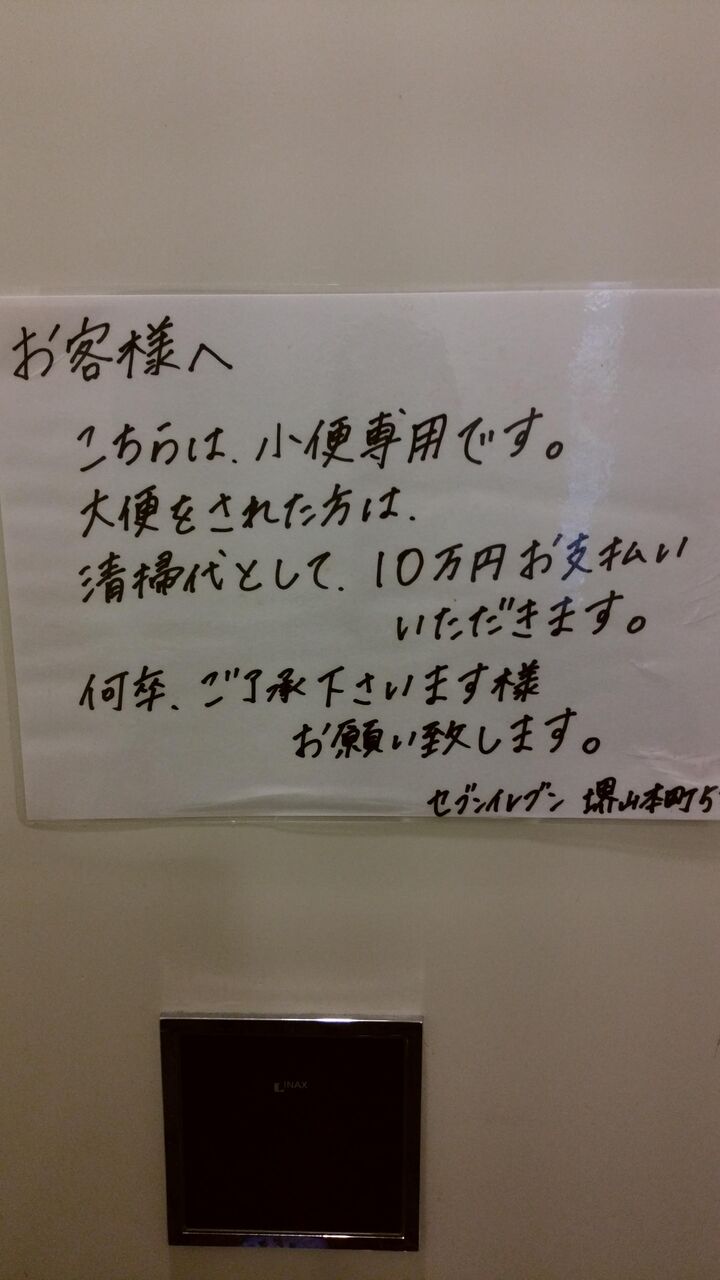 お客様へ
こちらは、小便専用です。
大便をされた方は、
清掃代として、10万円お支払い
いただきます。
何卒、ご了承下さいます様
お願い致します。
セブンイレブン 堺山本町5
INAX